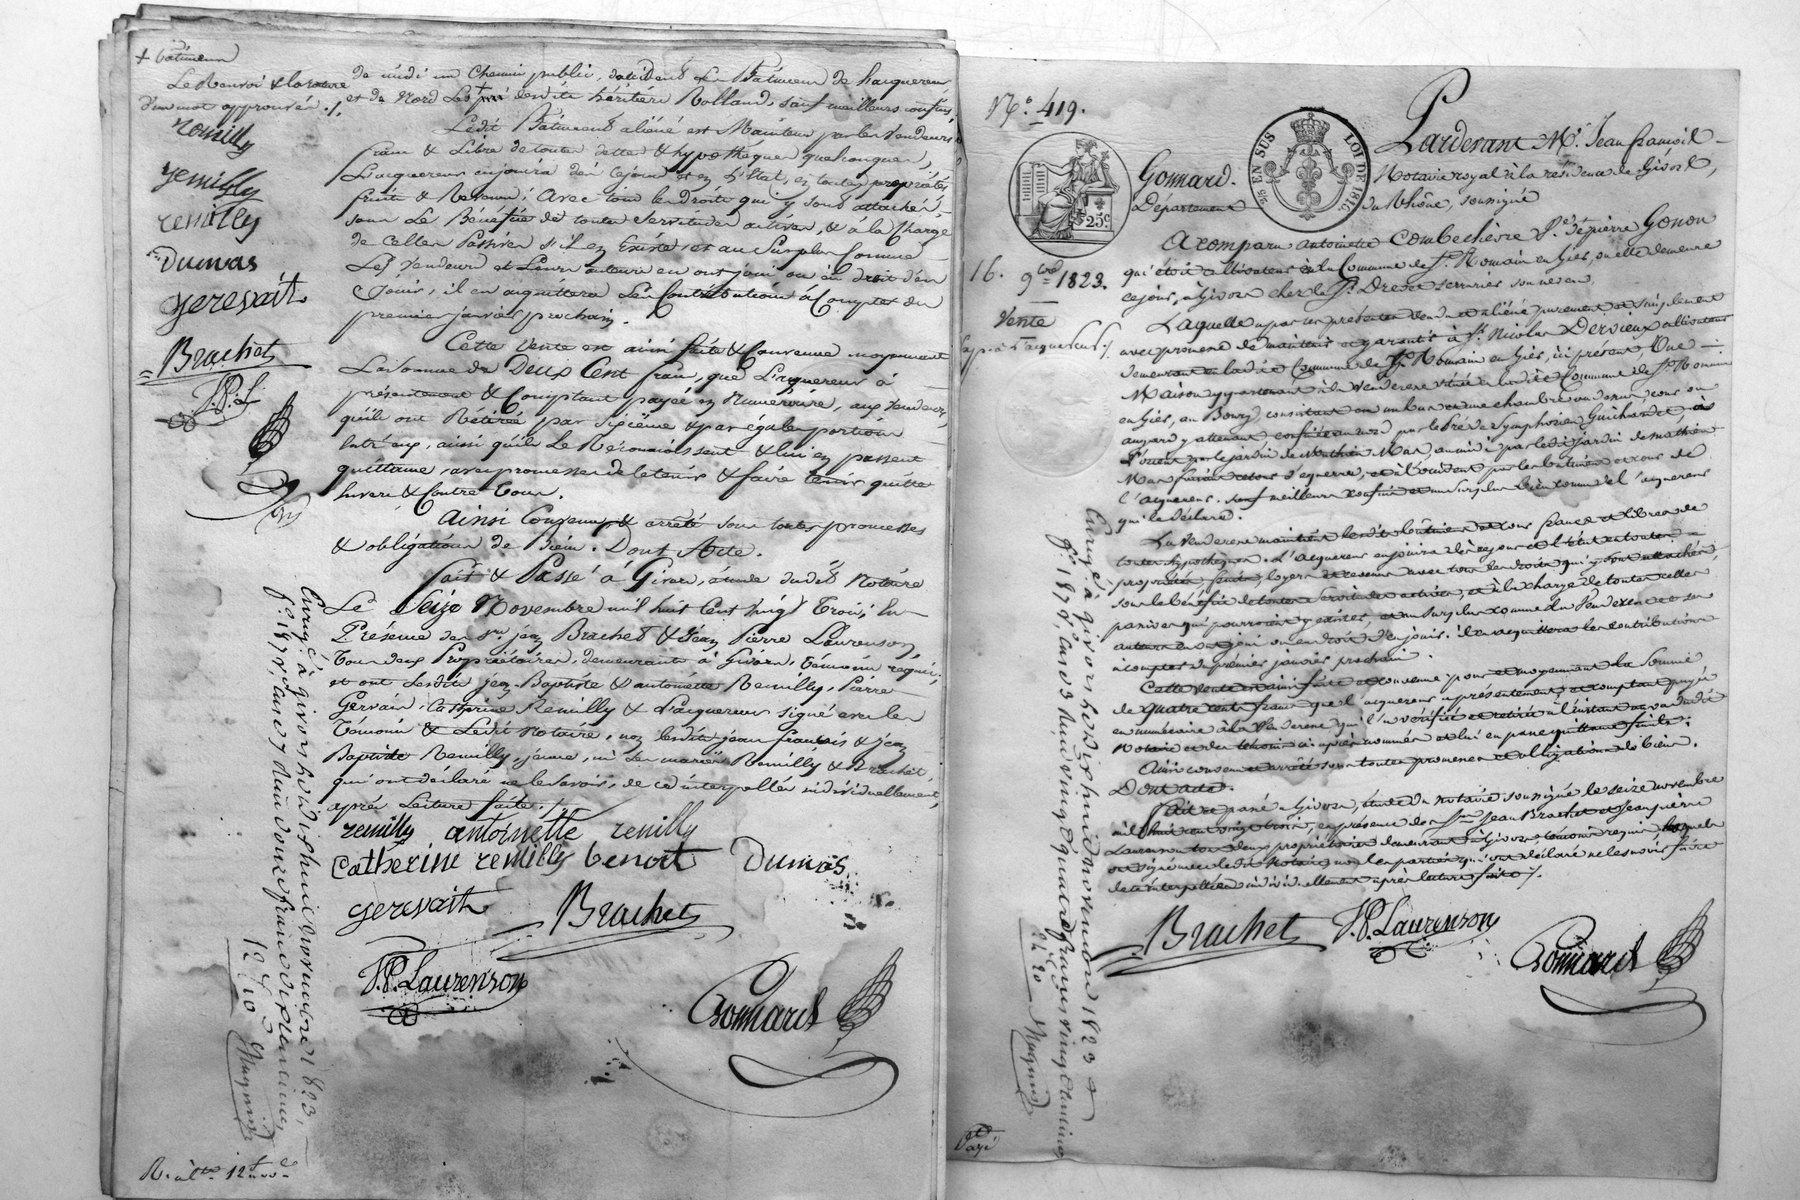 + bâtiment
Le Renvoi & la rature
d'un mot approuvés ./.
remilly
remilly
remilly
Dumas
gerevait
Brachet
J.P.L
de midi un chemin public, d'occident le Bâtiment de l'acquereur
et de Nord Les + desdits héritiers Rolland, sauf meilleurs confins
Ledit Bâtiment aliéné est Maintenu par les Vendeurs
franc & Libre de toutes dettes & hypothèques quelconques,
L'acquereur en jouira dès ce jour et en l'Etat, en toutes propriétés
fruits & Revenus; Avec tous les droits qui y sont attachés,
sous Le Bénéfice de toutes Servitudes actives, & à la Charge
de celles Passives s'il en Existe; et au Surplus Comme
Les Vendeurs et Leurs auteurs en ont joui ou eu droit d'en
Jouir; il en acquittera les Contributions à Compter du
premier janvier prochain.
Cette Vente est ainsi faite & Convenue moyennant
La Somme de Deux Cent francs, que L'acquereur a
présentement & Comptant payée en Numéraire, aux Vendeurs,
qui l'ont Rétirée par Sixième & par égales portions
Entr'eux, ainsi qu'ils Le Réconnoissent & lui en passent
quittance, avec promesse de le tenir & faire tenir quitte
Envers & Contre Tous.
Ainsi Convenu & arrêté sous toutes promesses
& obligations de Biens. Dont Acte.
Fait & Passé à Givors, étude dudit Notaire
Le Seize Novembre mil huit Cent vingt Trois; En
Présence des Srs jean Brachet & Jean Pierre Laurenson,
Tous deux Propriétaires, demeurants à Givors, témoins requis;
et ont Lesdits jean-Baptiste & antoinette Remilly, Pierre
Gervais, Catherine Remilly & L'acquereur signé avec les
Témoins & Ledit Notaire, non Lesdits jean françois & jean
Baptiste Remilly, jeune, ni Les mariés Remilly & Brachet,
qui ont déclaré ne le Savoir, de ce interpellés individuellement,
après Lecture faite ./.
remilly antoinette remilly
Catherine remilly benoit Dumas
gerevait Brachet
J.P. Laurenson
Gonnard
Enregé à givors le dix huit novembre 1823,
douze francs dix centimes
12 f 10 c Magnin
N° 419.
25c
EN SUS LOI DE 1816.
Gonnard.
Département
Pardevant Me Jean françois
Notaire royal à la résidence de Givors,
du Rhône, soussigné
16. 9bre 1823.
Vente
A comparu antoinette Combechière Ve de pierre Gonon
qui étoit cultivateur en la Commune de St Romain en Giés, où elle demeure
ce jour, à Givors chez le Sr Drevet serrurier son neveu,
Laquelle a par ces présentes vendu et aliéné purement et simplement
avec promesse de maintenir et garantir à Sr Nicolas Dervieux cultivateur
demeurant en ladite Commune de St Romain en Giés, ici présent, Une
Maison appartenant à la Venderesse située en ladite Commune de St Romain
en Giés, au Bourg consistant en un bas et une chambre au dessus cour ou
au nord par le pré de Symphorien Guichard, à
l'orient par le jardin de Mathieu Mas, au midi par ledit jardin de mathieu
Mas faisant retour d'equerre, et à l'occident par les bâtiments et cour de
l'acquereur, sauf meilleurs confins et au Surplus bien connue de l'acquereur
qui le déclare.
La Venderesse maintient lesdits bâtiments et cour francs et libres de
toutes hypothèques. L'acquereur en jouira dès ce jour et l'état en toutes
propriétés fruits, loyers et revenus avec tous les droits qui y sont attachés,
sous le bénéfice de toutes servitudes actives, et à la charge de toutes celles
passives qui pourroient y exister, et au surplus comme la Venderesse et ses
auteurs en ont joui ou eu droit d'en jouir. il en acquittera les contributions
à compter du premier janvier prochain.
Cette Vente est ainsi faite et convenue pour et moyennant la Somme
de quatre cent francs que l'acquereur a présentement, et comptant payée
en numéraire à la Venderesse qui l'a vérifiée et retirée à l'instant au vu dudit
Notaire et des témoins ci après nommés et lui en passe quittance finale.
Ainsi convenu et arrêté sous toutes promesses et obligations de biens.
Dont acte.
Fait et passé à Givors, étude du notaire soussigné le seize novembre
mil huit cent vingt trois, en présence des Srs Jean Brachet et Jean pierre
Laurenson tous deux propriétaires demeurant à Givors, témoins requis, lesquels
ont signé avec ledit Notaire non les parties qui ont déclaré ne le savoir faire
de ce interpellées individuellement après lecture faite ./.
Brachet J.P. Laurenson
Gonnard
Enregé à givors le dix huit novembre 1823
vingt quatre francs vingt centimes
24 20 Magnin
Payé